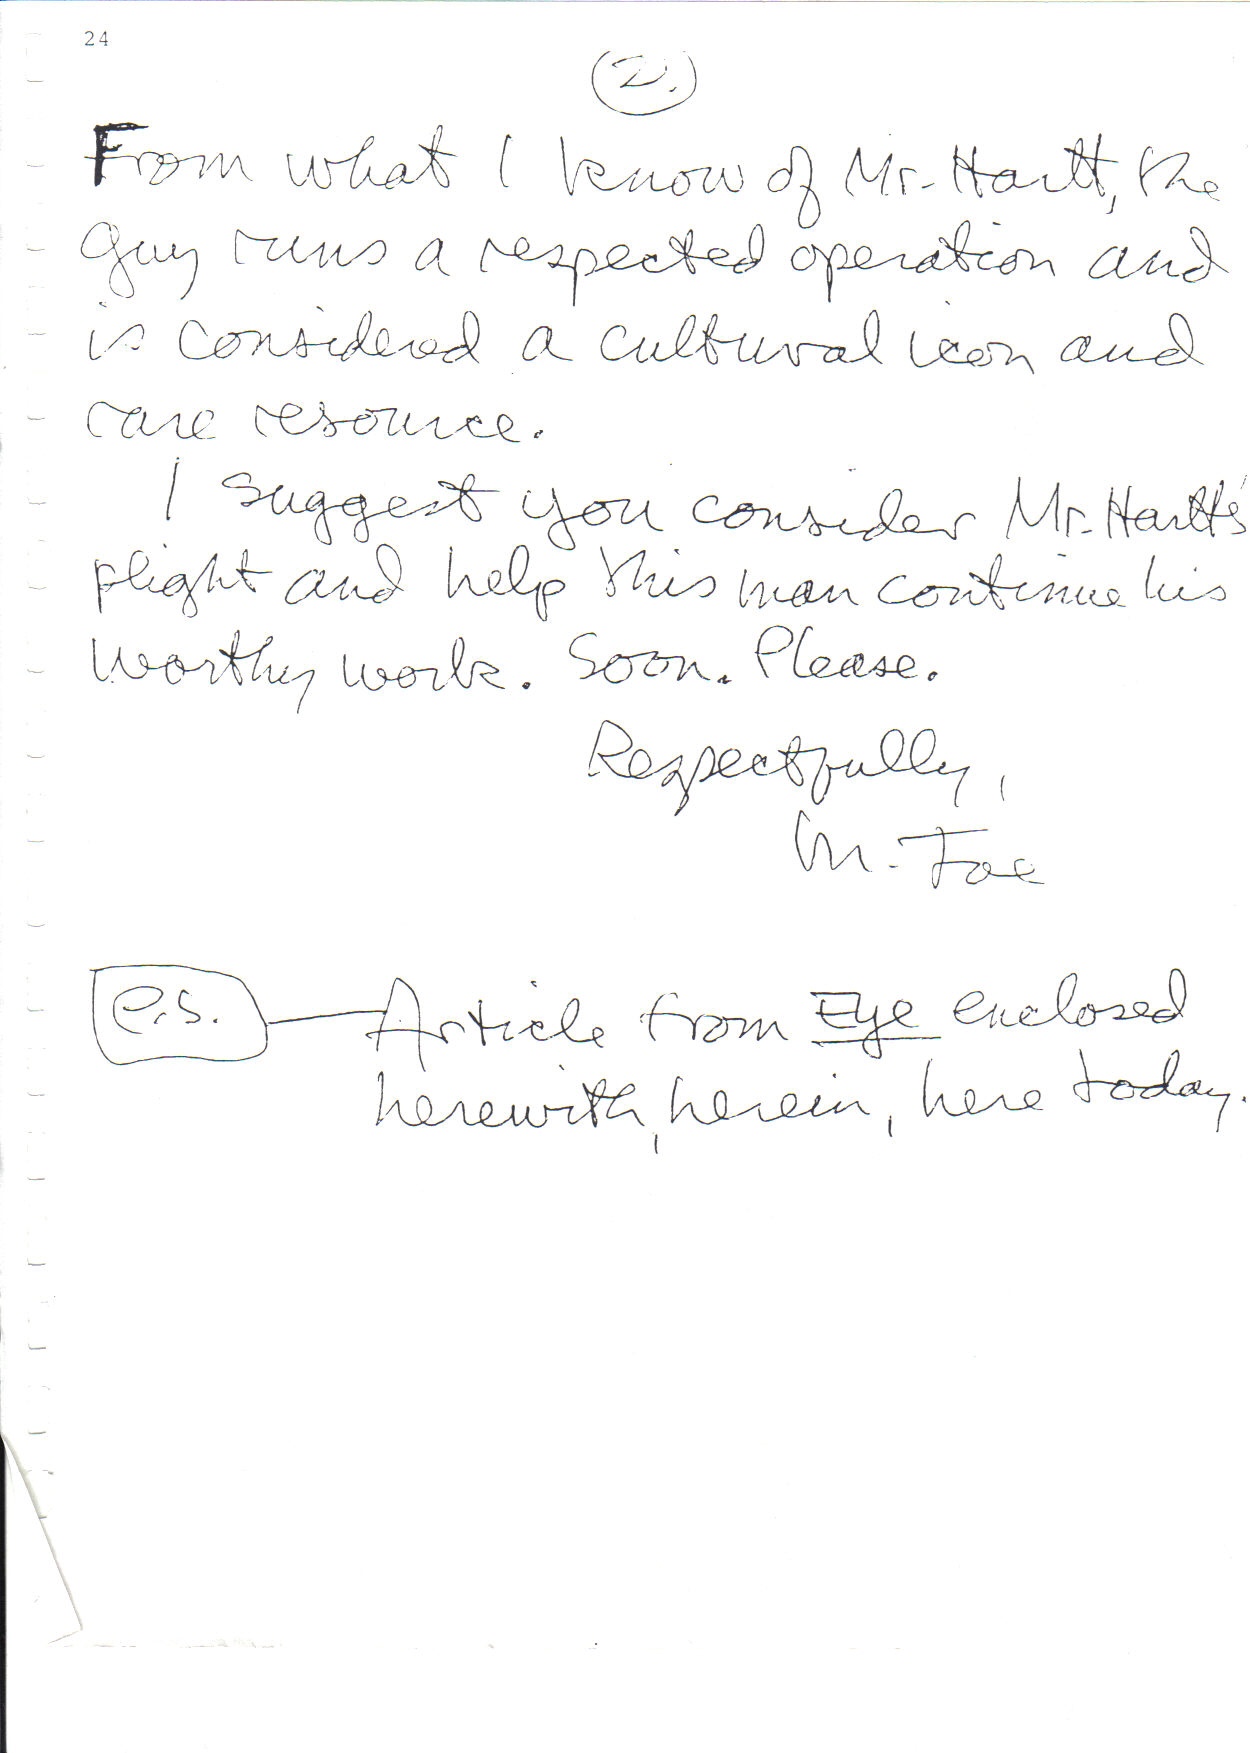 24
2.
From what I know of Mr. Hartt, the
guy runs a respected operation and
is considered a cultural icon and
rare resource.
I suggest you consider Mr. Hartt's
plight and help this man continue his
worthy work. Soon. Please.
Respectfully,
M. Foe
P.S. Article from Eye enclosed
herewith, herein, here today.